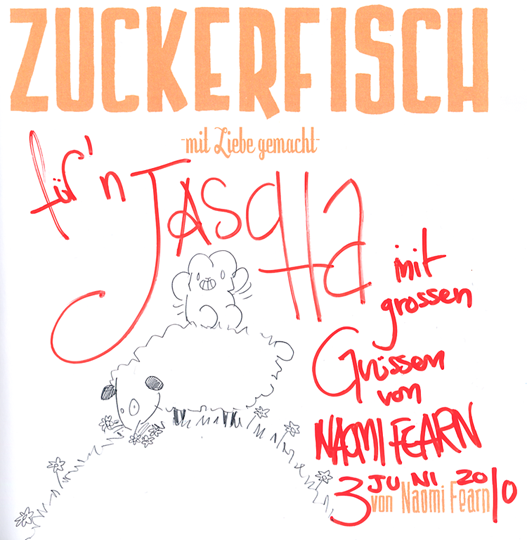 ZUCKERFISCH
-mit Liebe gemacht-
für'n
JASCHA
mit
grossen
Grüssen
von
NAOMI FEARN
3 JUNI 2010
von Naomi Fearn